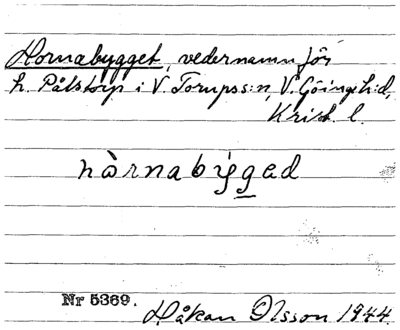 Hornabygget, vedernamn för
h. Pålstorp i V. Torups s:n, V. Göinge h:d,
Krist. l.
hòrnabýgad
Nr 5369.
Håkan Olsson 1944.